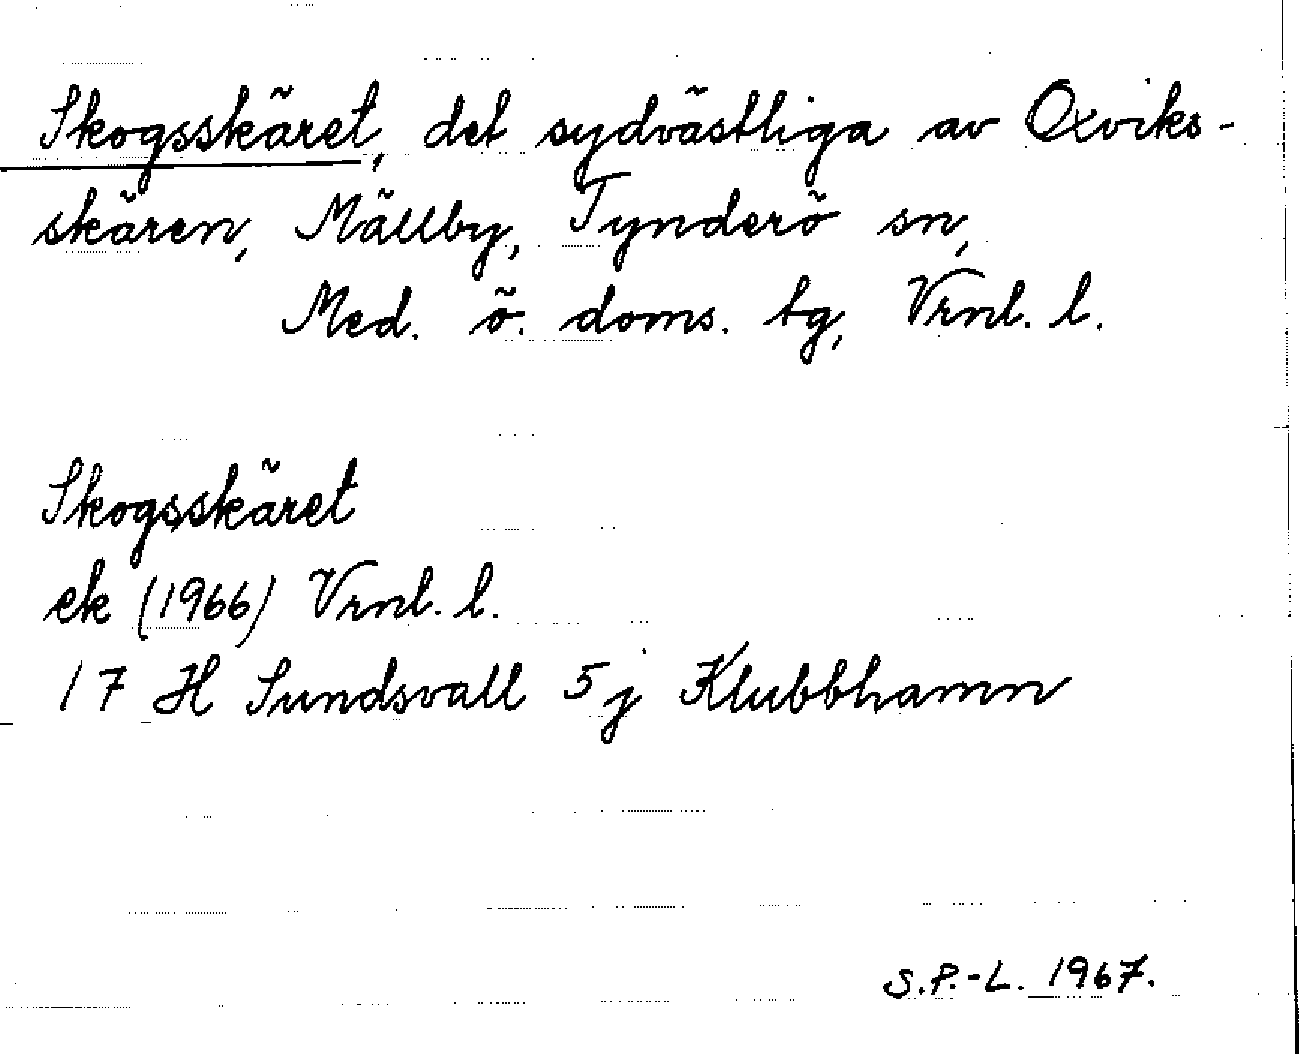 Skogsskäret, det sydvästliga av Oxviks-
skären, Mällby, Tynderö sn,
Med. ö. doms. tg, Vrnl. l.
Skogsskäret
ek (1966) Vrnl. l.
17 H Sundsvall 5 j Klubbhamn
S.P.-L. 1967.